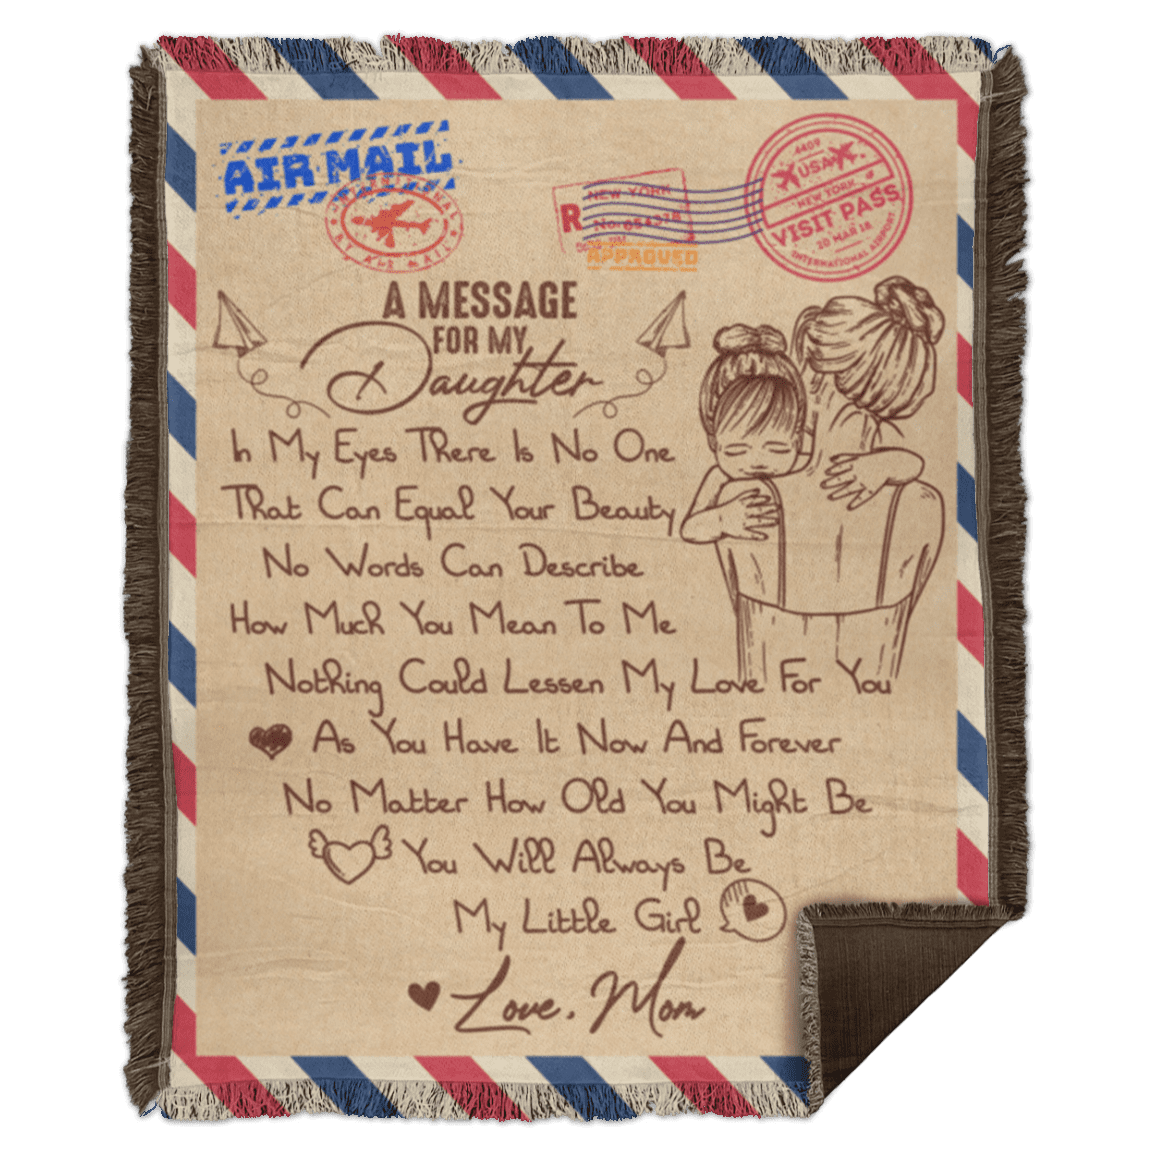 AIR MAIL
INTERNATIONAL
BY AIR MAIL
NEW YORK
R No. 
APPROVED
4409
USA
NEW YORK
VISIT PASS
20 MAR 18
INTERNATIONAL AIRPORT
A MESSAGE
FOR MY
Daughter
In My Eyes There Is No One
That Can Equal Your Beauty
No Words Can Describe
How Much You Mean To Me
Nothing Could Lessen My Love For You
As You Have It Now And Forever
No Matter How Old You Might Be
You Will Always Be
My Little Girl
Love, Mom